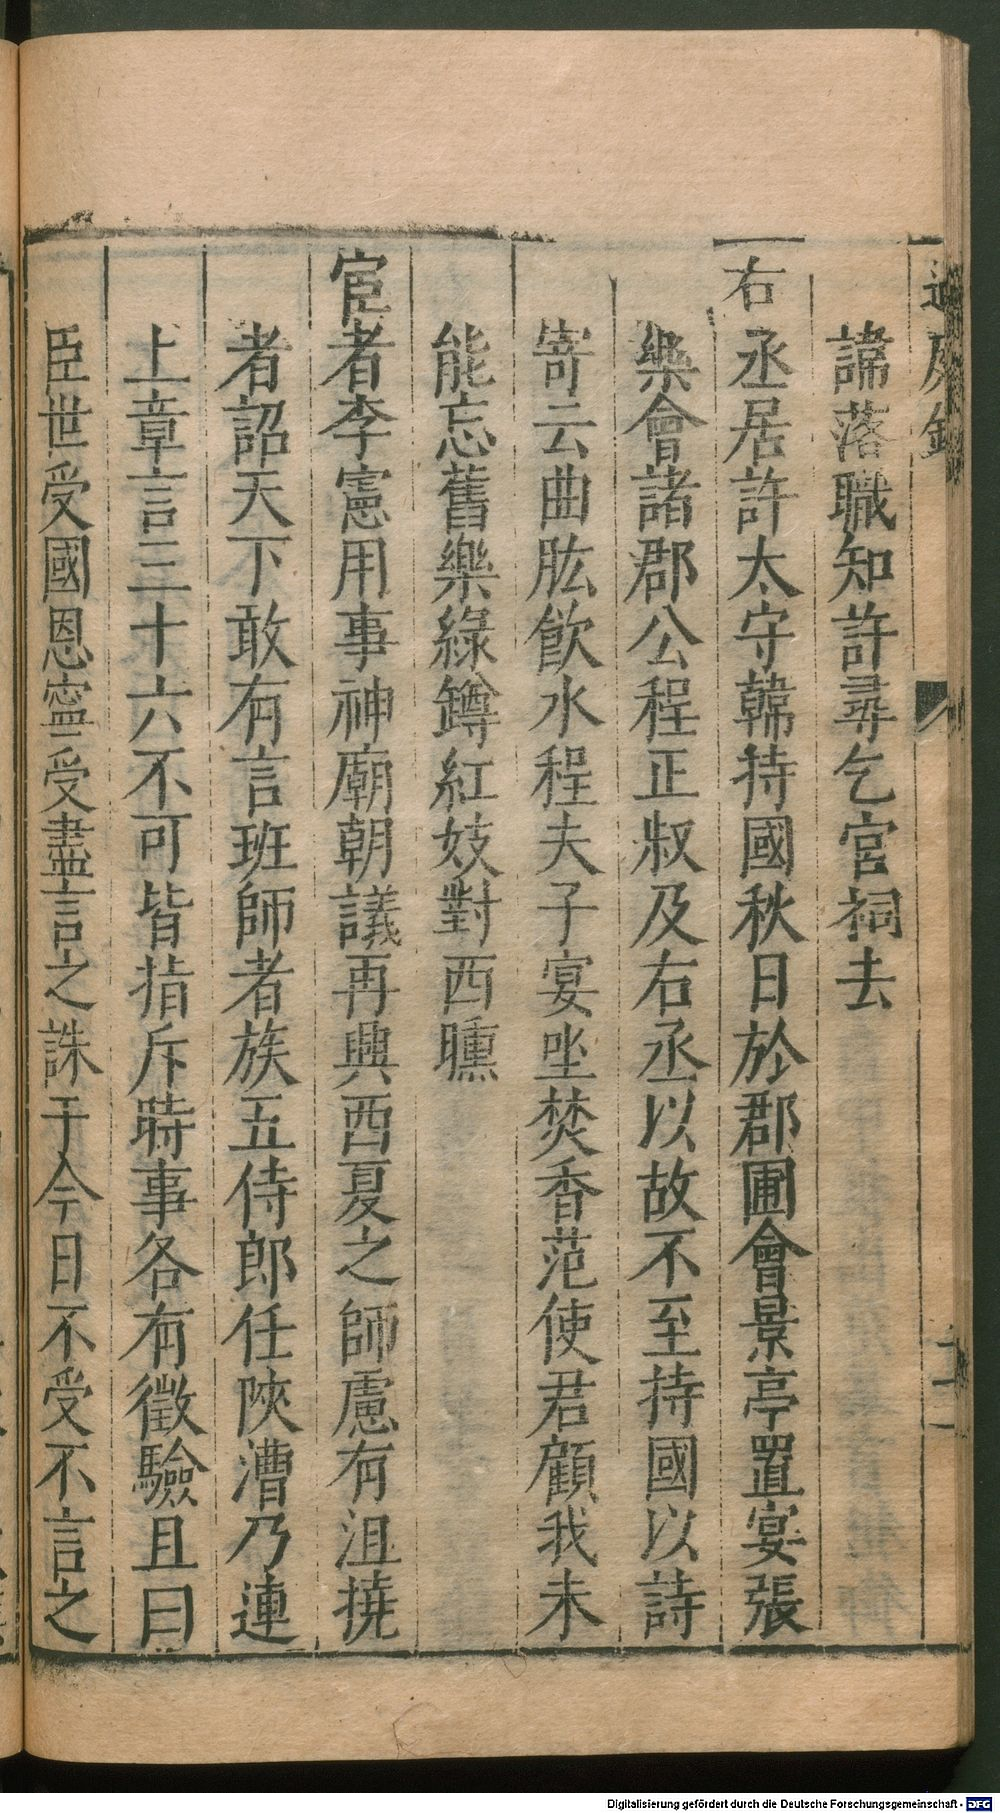 過庭錄
二
諱落職知許尋乞宮祠去
右丞居許太守韓持國秋日於郡圃會景亭置宴張
樂會諸郡公程正叔及右丞以故不至持國以詩
寄云曲肱飲水程夫子宴坐焚香范使君顧我未
能忘舊樂綠罇紅妓對西曛
宦者李憲用事神廟朝議再興西夏之師慮有沮撓
者詔天下敢有言班師者族五侍郎任陝漕乃連
上章言三十六不可皆指斥時事各有徵驗且曰
臣世受國恩寧受盡言之誅于今日不受不言之
Digitalisierung gefördert durch die Deutsche Forschungsgemeinschaft - DFG